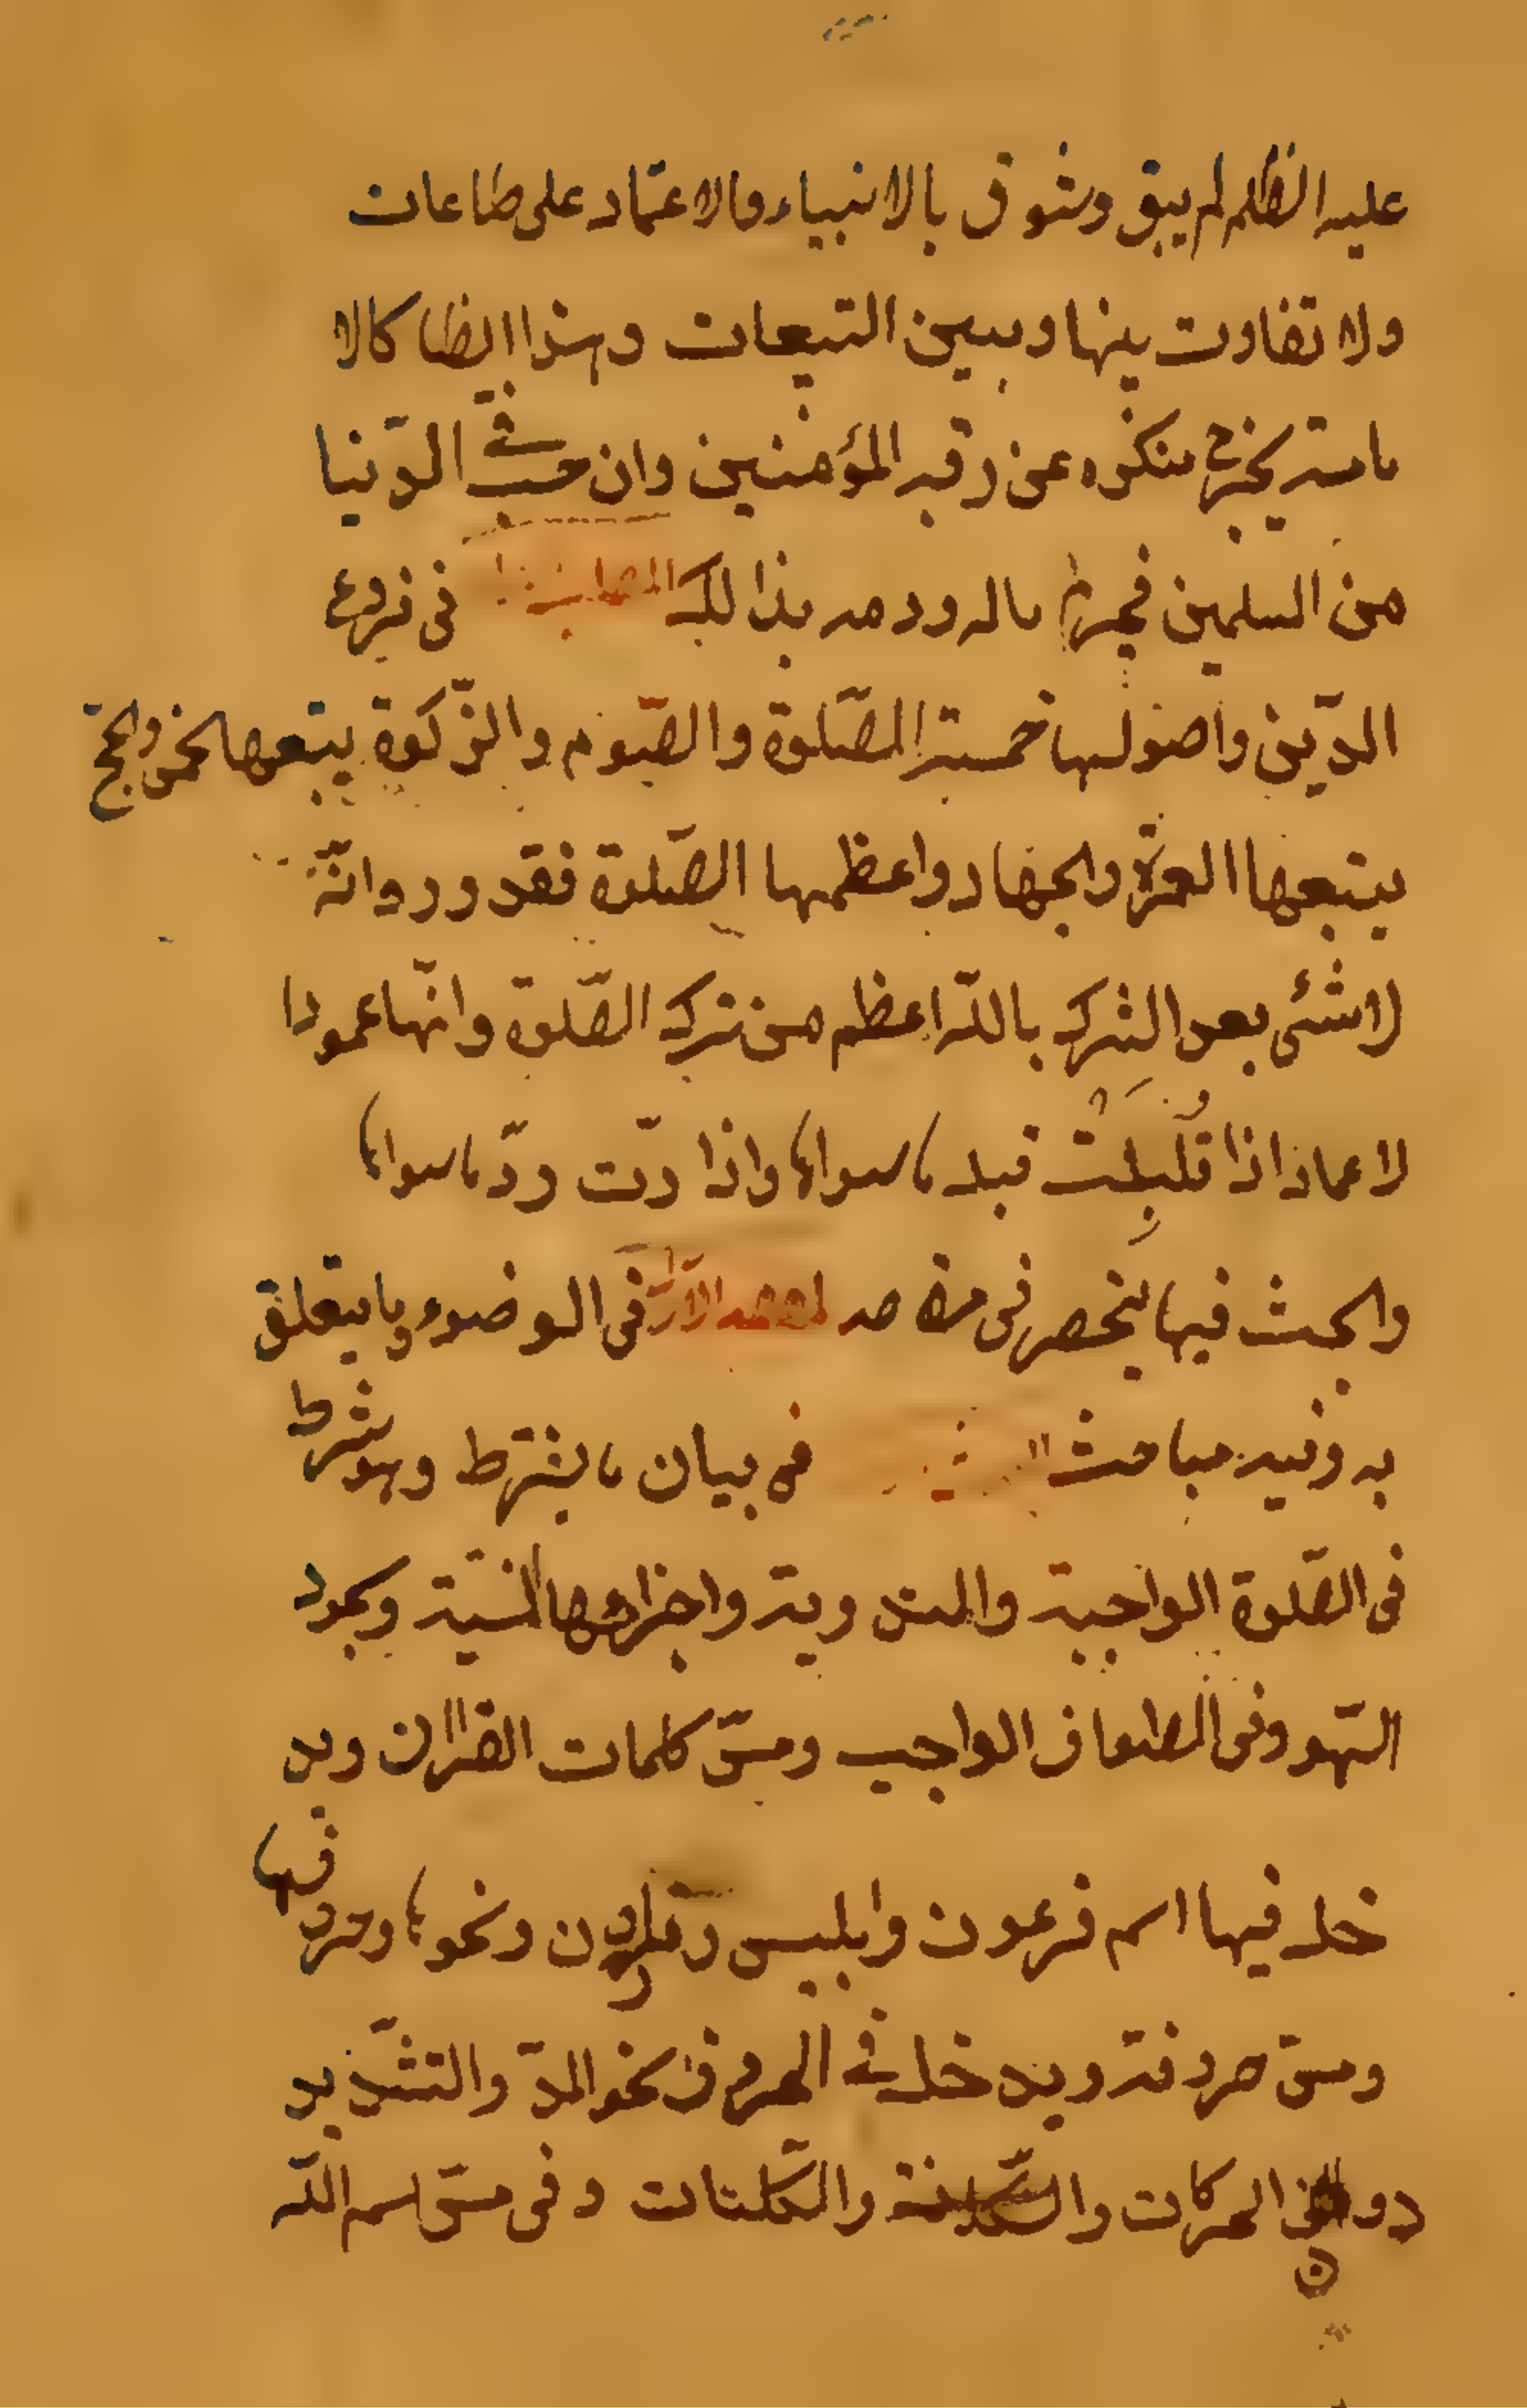 عليه الظلم لم يبق وثوق بالانبياء والاعتماد على طاعات
ولا تفاوت بينها وبين التبعات وهذا ايضا كالا
ما مة يخرج منكره عن رقبة المؤمنين وان حسب في الدنيا
من المسلمين فحرم ماله ودمه بذالك في فروع
الدين واصولها خمسة الصلوة والصوم والزكوة يتبعها الخمس والحج
يتبعها العمرة والجهاد واعظمها الصلوة فقد ورد انه
لا شئ بعد الشرك بالله اعظم من ترك الصلوة وانها عمود ا
لا عماد اذا قبلت قبل ما سواها واذا ردت رد ما سواها
والبحث فيها ينحصر في مقاصد الاول في الوضوء وما يتعلق
به وفيه مباحث في بيان ما يشترط وهو شرط
في الصلوة الواجبة والمندوبة واجزائها المنسية وسجود
السهو وفي الطواف الواجب ومس كلمات القران ويد
خل فيها اسم فرعون وابليس وقارون ونحوها وحروفها
ومس حروفه ويدخل في الحروف نحو المد والتشديد
دون الحركات والسكنة والسكنات وفي مس اسم الله